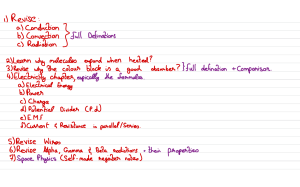 1) REVISE:
a) Conduction
b) Convection } full Definations
c) Radiation
2) Learn why molecules expand when heated?
3) Revise why the colour black is a good absorber? } full defination + Comparison
4) Electricity chapter, especially the formulas
a) Electrical Energy
b) Power
c) Charge
d) Potential Divider (P.d)
e) E.M.F
d) Current & Resistance in parallel/Series
5) Revise Wires
6) Revise Alpha, Gamma & Beta radiations + their properties
7) Space Physics (Self-made notes)